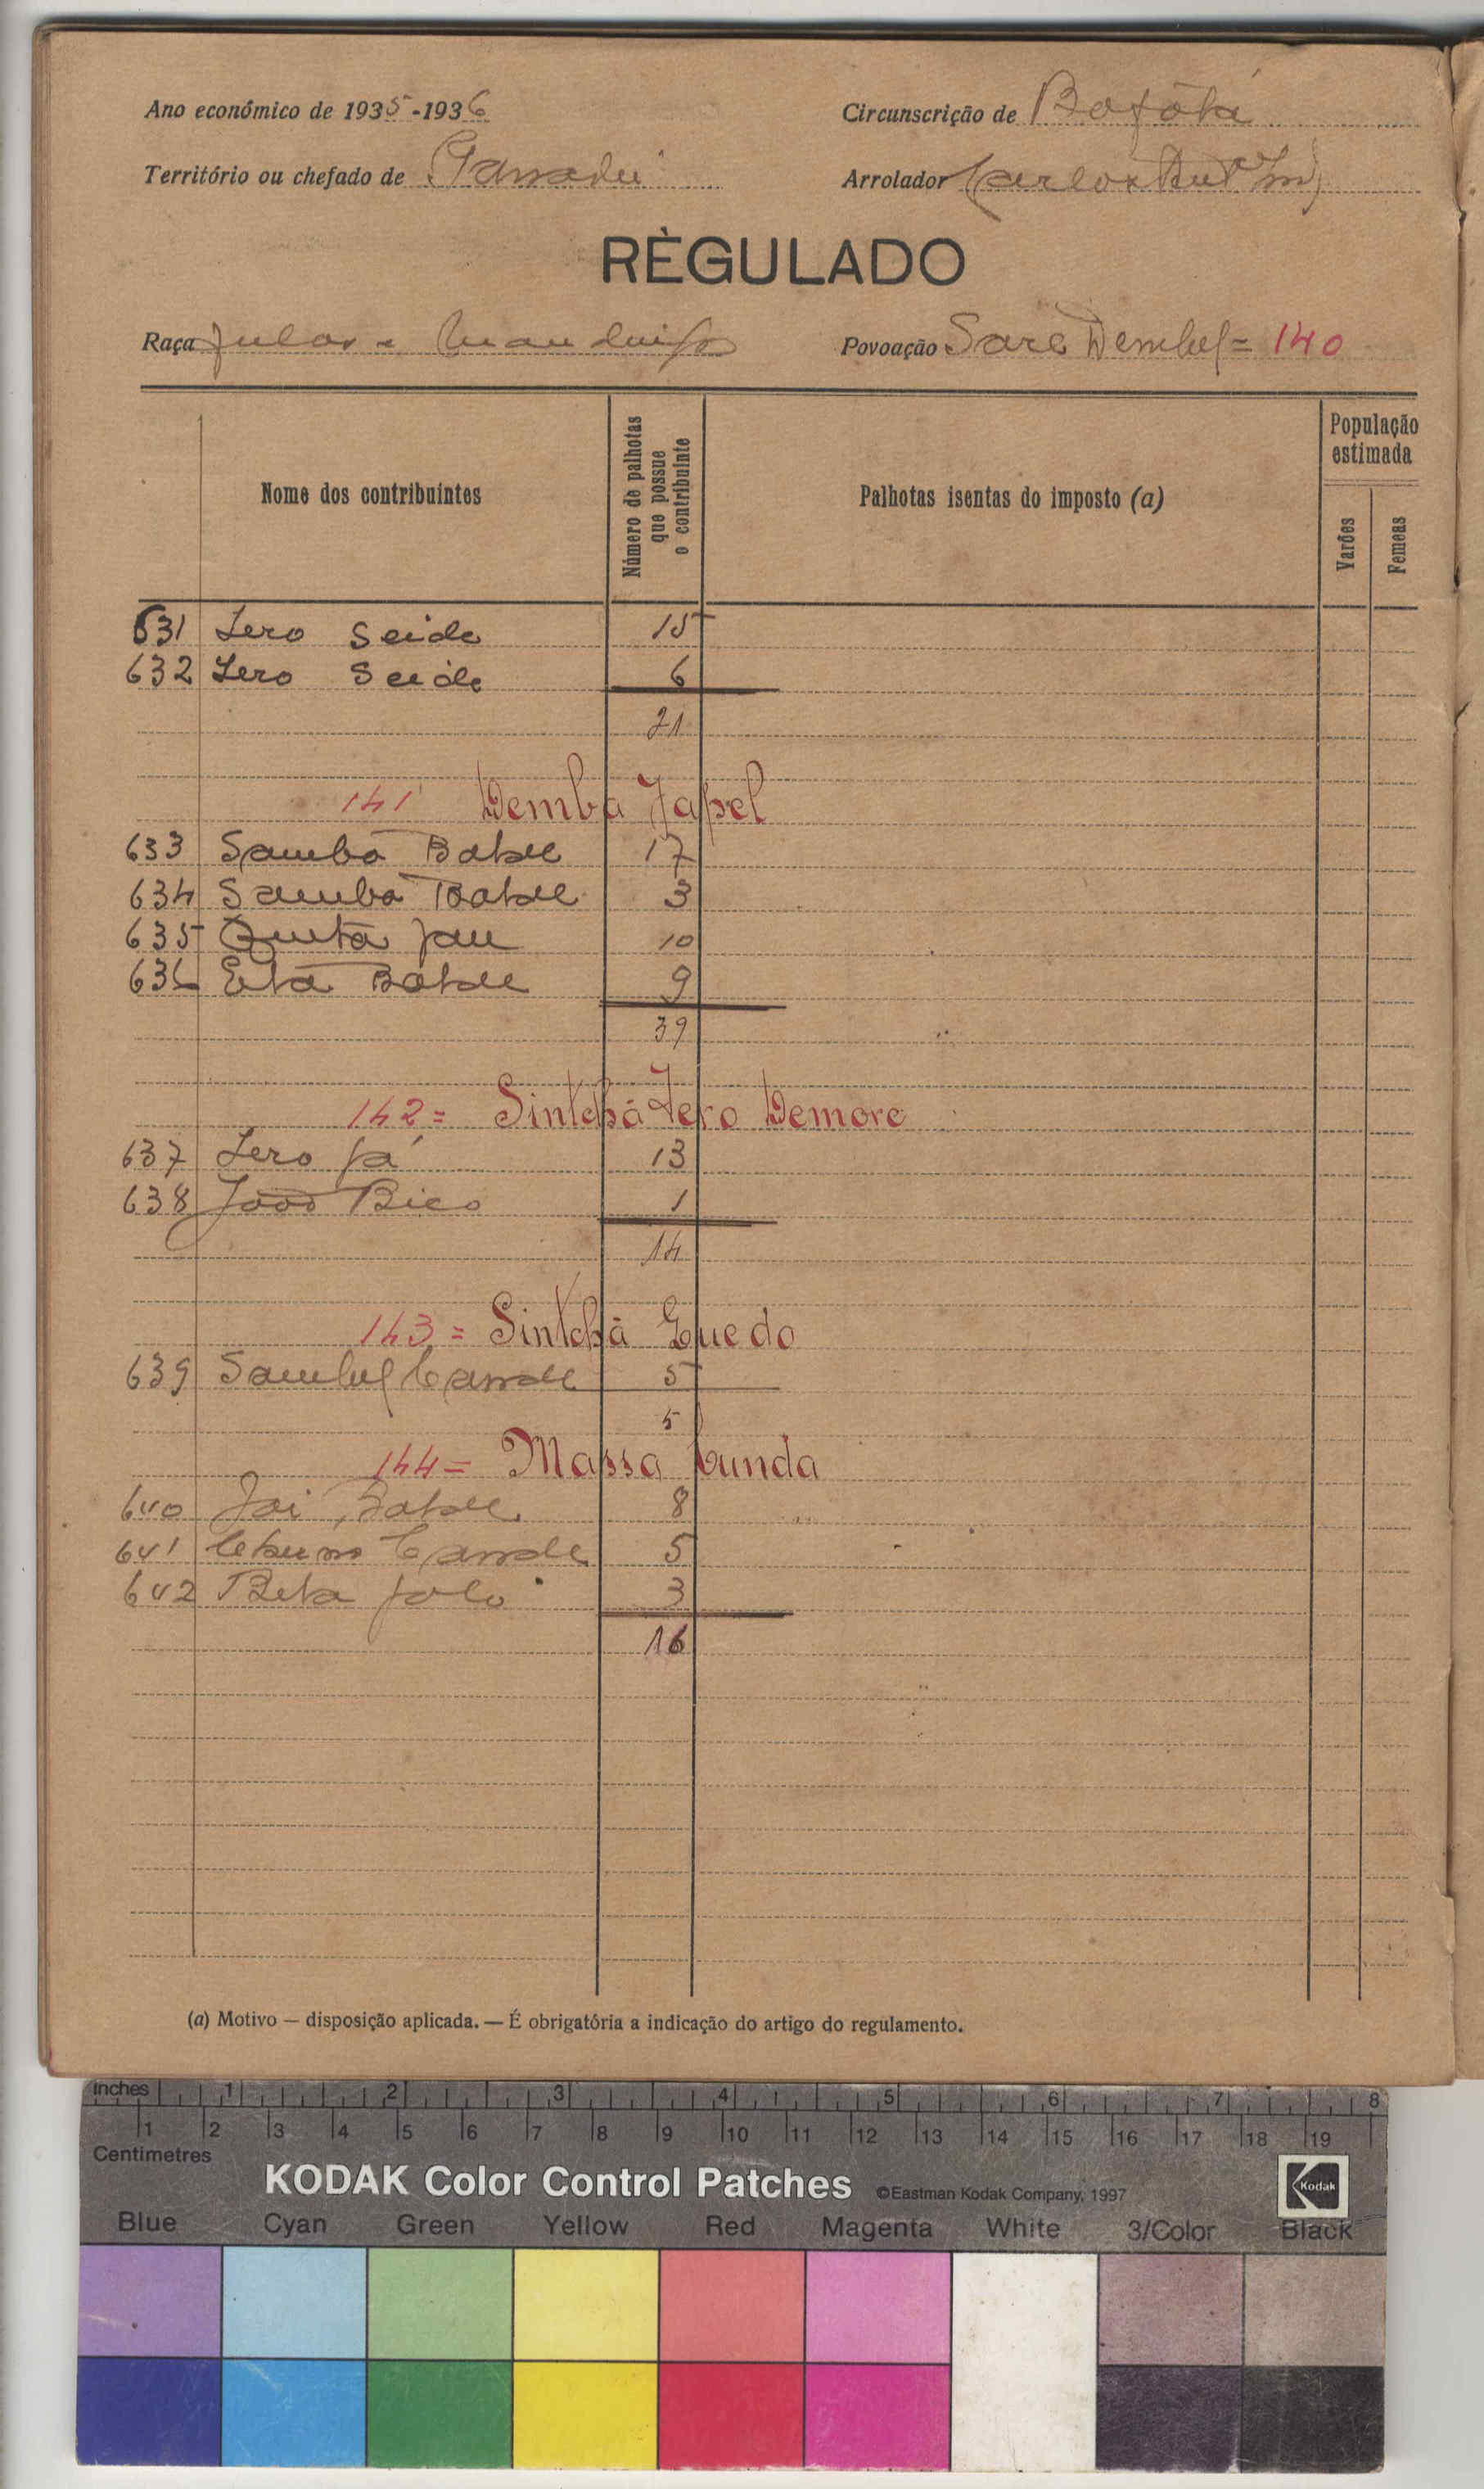 Ano económico de 1935-1936
Circunscrição de Bafátá
Território ou chefado de
Arrolador Carlos
RÈGULADO
Raça Fulas e Mandinga
Povoação Sare Dembel = 140
Nome dos contribuintes
Número de palhotas que possue o contribuinte
Palhotas isentas do imposto (a)
População estimada
Varões
Femeas
631 Lero Seide 15
632 Lero Seide 6
21
141 Demba Jabel
633 Samba Balde 17
634 Samba Balde 3
635 Quita Jau 10
636 Balde 9
39
142 = Sintchã Lero Demore
637 Lero Já 13
638 João Bico 1
14
143 = Sintchã Guedo
639 Sambel Cande 5
5
144 = Massa Cunda
640 Balde 8
641 Cande 5
642 Beta 3
16
(a) Motivo — disposição aplicada. — É obrigatória a indicação do artigo do regulamento.
Inches 1 2 3 4 5 6 7 8
1 2 3 4 5 6 7 8 9 10 11 12 13 14 15 16 17 18 19
Centimetres
KODAK Color Control Patches ©Eastman Kodak Company, 1997 Kodak
Blue Cyan Green Yellow Red Magenta White 3/Color Black